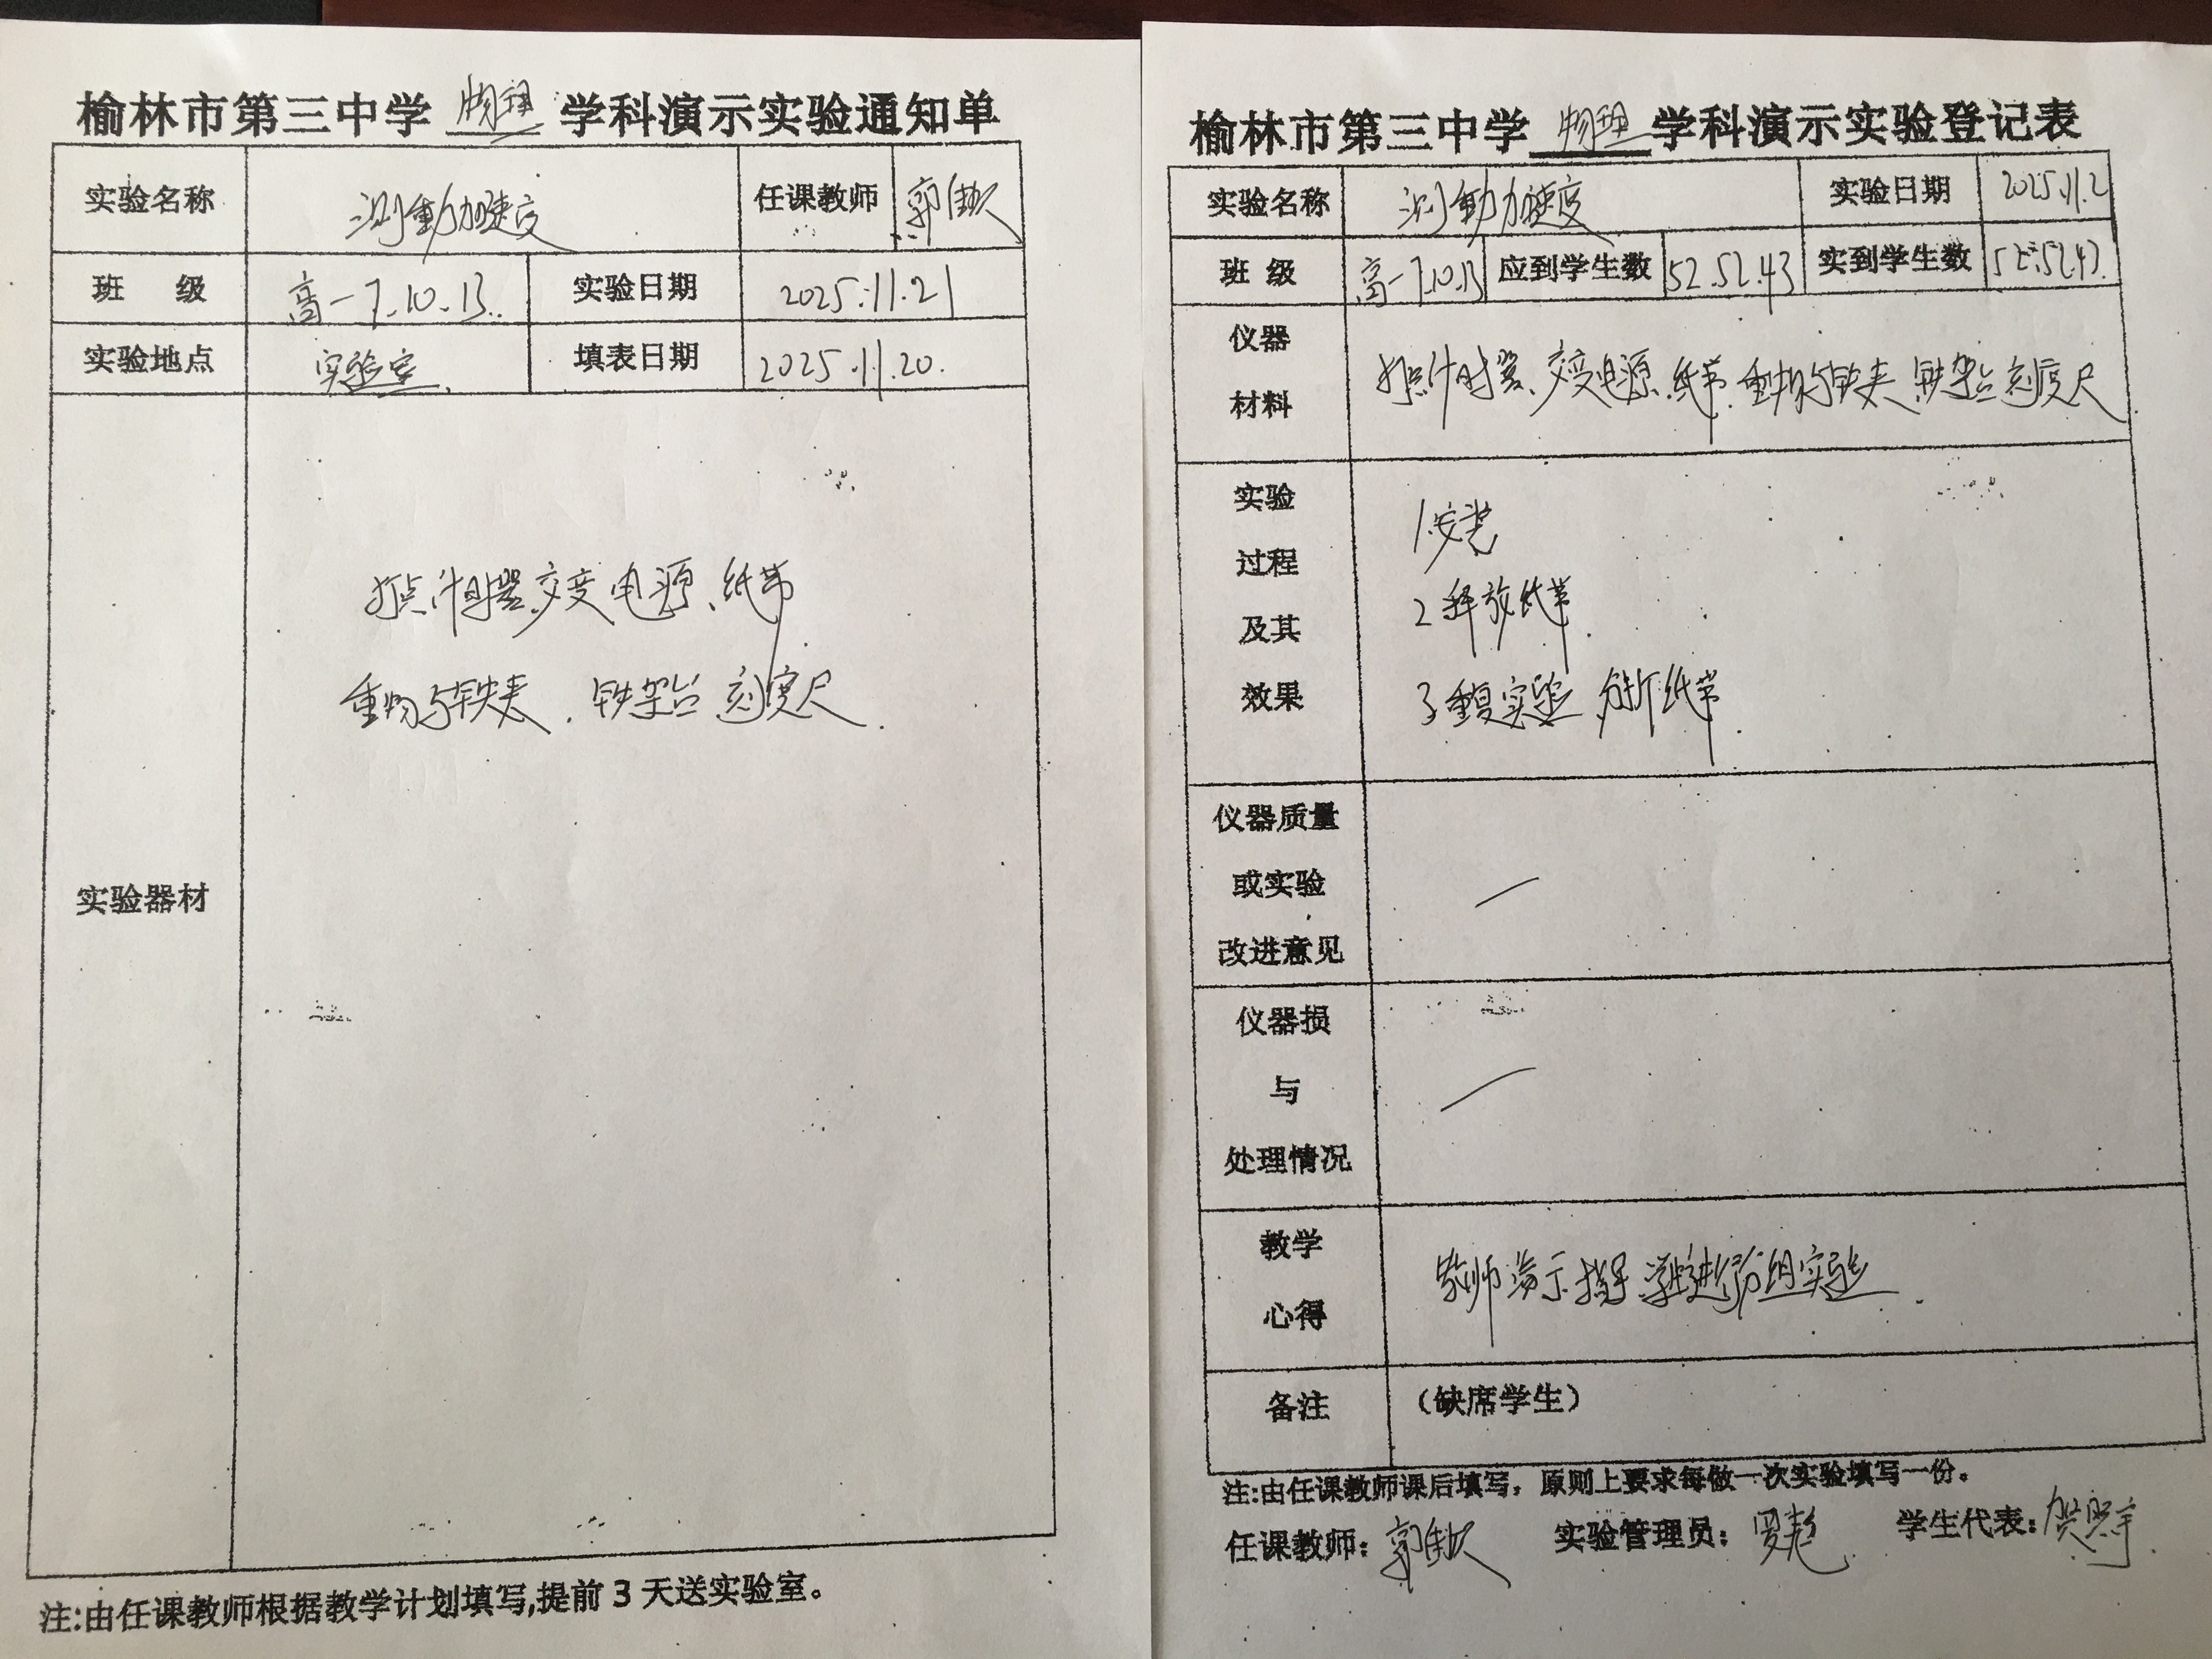 榆林市第三中学 物理 学科演示实验通知单
实验名称 测重力加速度 任课教师 郭佳欣
班 级 高一7.10.13. 实验日期 2025.11.21
实验地点 实验室. 填表日期 2025.11.20.
实验器材
打点计时器、交变电源、纸带
重物与铁夹、铁架台 刻度尺.
注:由任课教师根据教学计划填写,提前3天送实验室。
榆林市第三中学 物理 学科演示实验登记表
实验名称 测重力加速度 实验日期 2025.11.2
班 级 高一7.10.13 应到学生数 52.52.43 实到学生数 52.52.43.
仪器
材料
打点计时器、交变电源、纸带、重物与铁夹、铁架台 刻度尺.
实验
过程
及其
效果
1.安装
2 释放纸带.
3 重复实验 分析纸带.
仪器质量
或实验
改进意见
仪器损
与
处理情况
教学
心得
教师演示.指导.学生进行分组实验.
备注 (缺席学生)
注:由任课教师课后填写，原则上要求每做一次实验填写一份。
任课教师: 郭佳欣 实验管理员: 罗彪 学生代表: